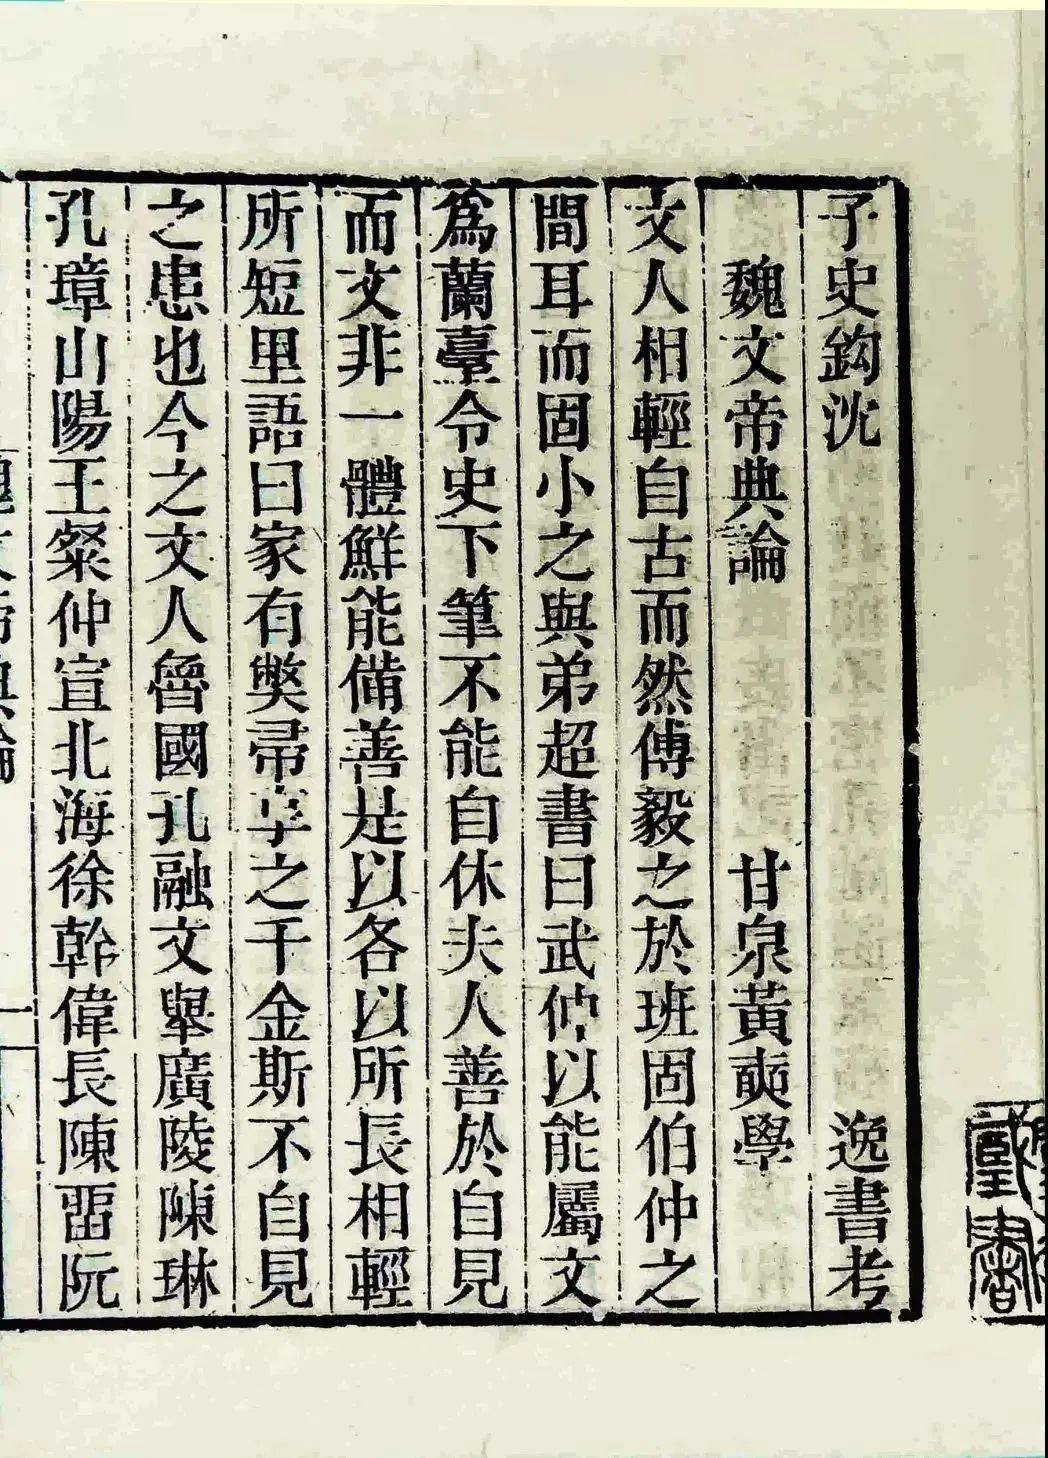 子史鈎沈 逸書考
魏文帝典論 甘泉黃奭學
文人相輕自古而然傅毅之於班固伯仲之
間耳而固小之與弟超書曰武仲以能屬文
爲蘭臺令史下筆不能自休夫人善於自見
而文非一體鮮能備善是以各以所長相輕
所短里語曰家有獘帚享之千金斯不自見
之患也今之文人魯國孔融文舉廣陵陳琳
孔璋山陽王粲仲宣北海徐幹偉長陳畱阮
魏文帝典論 一